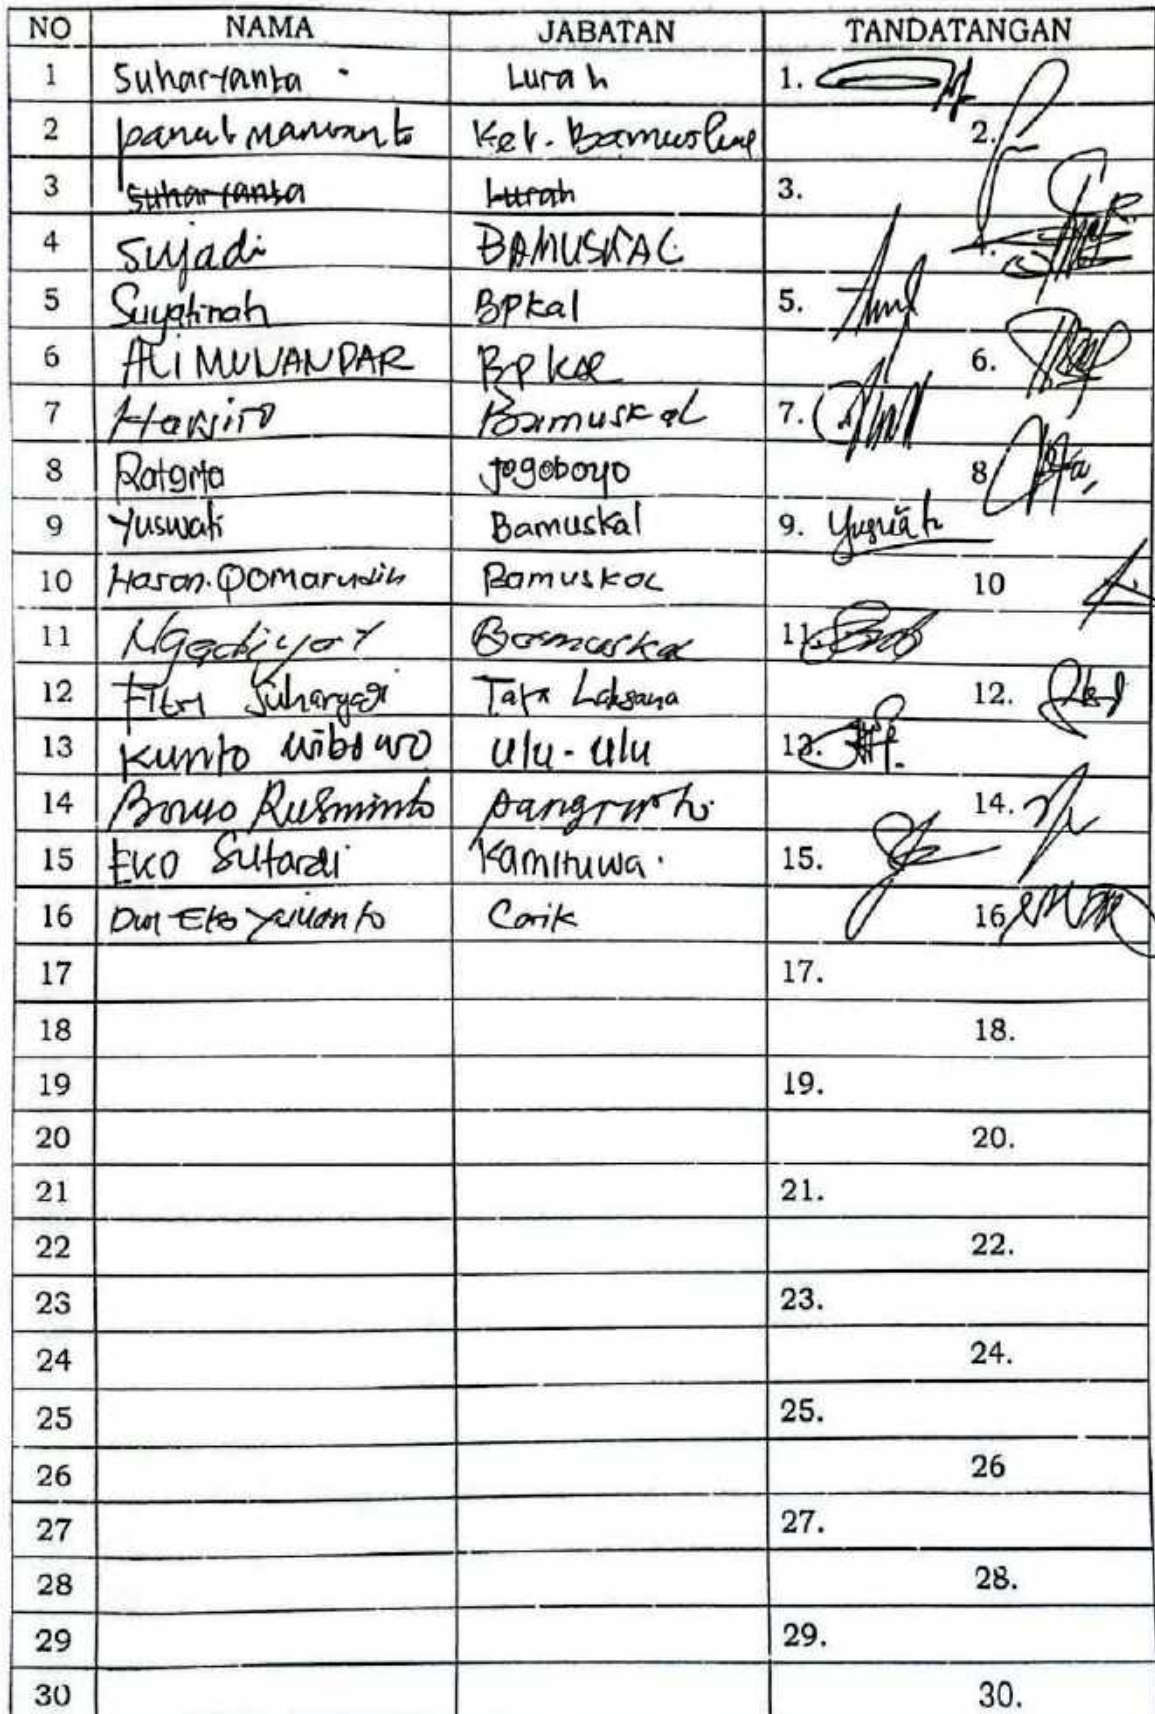 NO NAMA JABATAN TANDATANGAN
1 Suharyanta Lurah 1.
2 Ket. 2.
3 Suharyanta Lurah 3.
4 Sujadi BAMUSKAL 4.
5 Suyatinah BPkal 5.
6 ALI MUNANDAR BPkal 6.
7 Harsito Bamuskal 7.
8 Ratgita jogoboyo 8
9 Yuswati Bamuskal 9. Yusriah
10 Hasan. Qomarudin Bamuskal 10
11 Bamuskal 11
12 Fitri Suharyadi Tata Laksana 12.
13 Kunto wibowo ulu-ulu 13.
14 Rusminto 14.
15 EKO Sutardi Kamituwa. 15.
16 Dwi Eko Yulianto Carik 16
17 17.
18 18.
19 19.
20 20.
21 21.
22 22.
23 23.
24 24.
25 25.
26 26
27 27.
28 28.
29 29.
30 30.